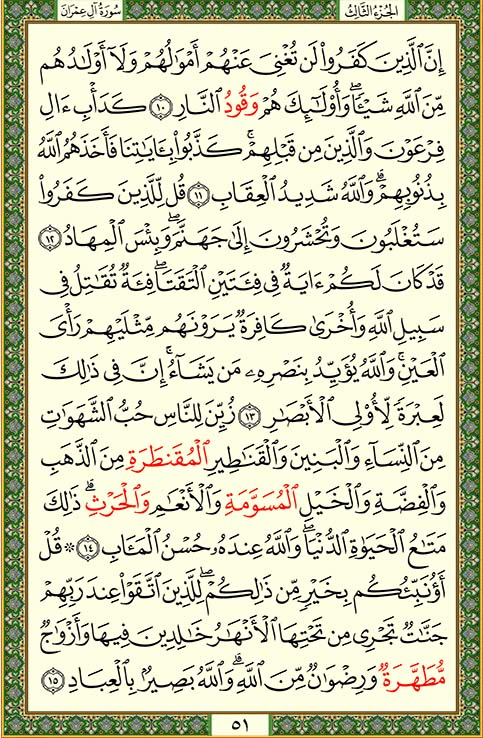 سُورَةُ آلِ عِمْرَانَ الجُزْءُ الثَّالِثُ
إِنَّ ٱلَّذِينَ كَفَرُواْ لَن تُغْنِىَ عَنْهُمْ أَمْوَٰلُهُمْ وَلَآ أَوْلَـٰدُهُم
مِّنَ ٱللَّهِ شَيْـًٔا ۖ وَأُوْلَـٰٓئِكَ هُمْ وَقُودُ ٱلنَّارِ ١٠ كَدَأْبِ ءَالِ
فِرْعَوْنَ وَٱلَّذِينَ مِن قَبْلِهِمْ ۚ كَذَّبُواْ بِـَٔايَـٰتِنَا فَأَخَذَهُمُ ٱللَّهُ
بِذُنُوبِهِمْ ۗ وَٱللَّهُ شَدِيدُ ٱلْعِقَابِ ١١ قُل لِّلَّذِينَ كَفَرُواْ
سَتُغْلَبُونَ وَتُحْشَرُونَ إِلَىٰ جَهَنَّمَ ۚ وَبِئْسَ ٱلْمِهَادُ ١٢
قَدْ كَانَ لَكُمْ ءَايَةٌ فِى فِئَتَيْنِ ٱلْتَقَتَا ۖ فِئَةٌ تُقَـٰتِلُ فِى
سَبِيلِ ٱللَّهِ وَأُخْرَىٰ كَافِرَةٌ يَرَوْنَهُم مِّثْلَيْهِمْ رَأْىَ
ٱلْعَيْنِ ۚ وَٱللَّهُ يُؤَيِّدُ بِنَصْرِهِۦ مَن يَشَآءُ ۗ إِنَّ فِى ذَٰلِكَ
لَعِبْرَةً لِّأُوْلِى ٱلْأَبْصَـٰرِ ١٣ زُيِّنَ لِلنَّاسِ حُبُّ ٱلشَّهَوَٰتِ
مِنَ ٱلنِّسَآءِ وَٱلْبَنِينَ وَٱلْقَنَـٰطِيرِ ٱلْمُقَنطَرَةِ مِنَ ٱلذَّهَبِ
وَٱلْفِضَّةِ وَٱلْخَيْلِ ٱلْمُسَوَّمَةِ وَٱلْأَنْعَـٰمِ وَٱلْحَرْثِ ۗ ذَٰلِكَ
مَتَـٰعُ ٱلْحَيَوٰةِ ٱلدُّنْيَا ۖ وَٱللَّهُ عِندَهُۥ حُسْنُ ٱلْمَـَٔابِ ١٤ ۞ قُلْ
أَؤُنَبِّئُكُم بِخَيْرٍ مِّن ذَٰلِكُمْ ۚ لِلَّذِينَ ٱتَّقَوْاْ عِندَ رَبِّهِمْ
جَنَّـٰتٌ تَجْرِى مِن تَحْتِهَا ٱلْأَنْهَـٰرُ خَـٰلِدِينَ فِيهَا وَأَزْوَٰجٌ
مُّطَهَّرَةٌ وَرِضْوَٰنٌ مِّنَ ٱللَّهِ ۗ وَٱللَّهُ بَصِيرٌۢ بِٱلْعِبَادِ ١٥
٥١